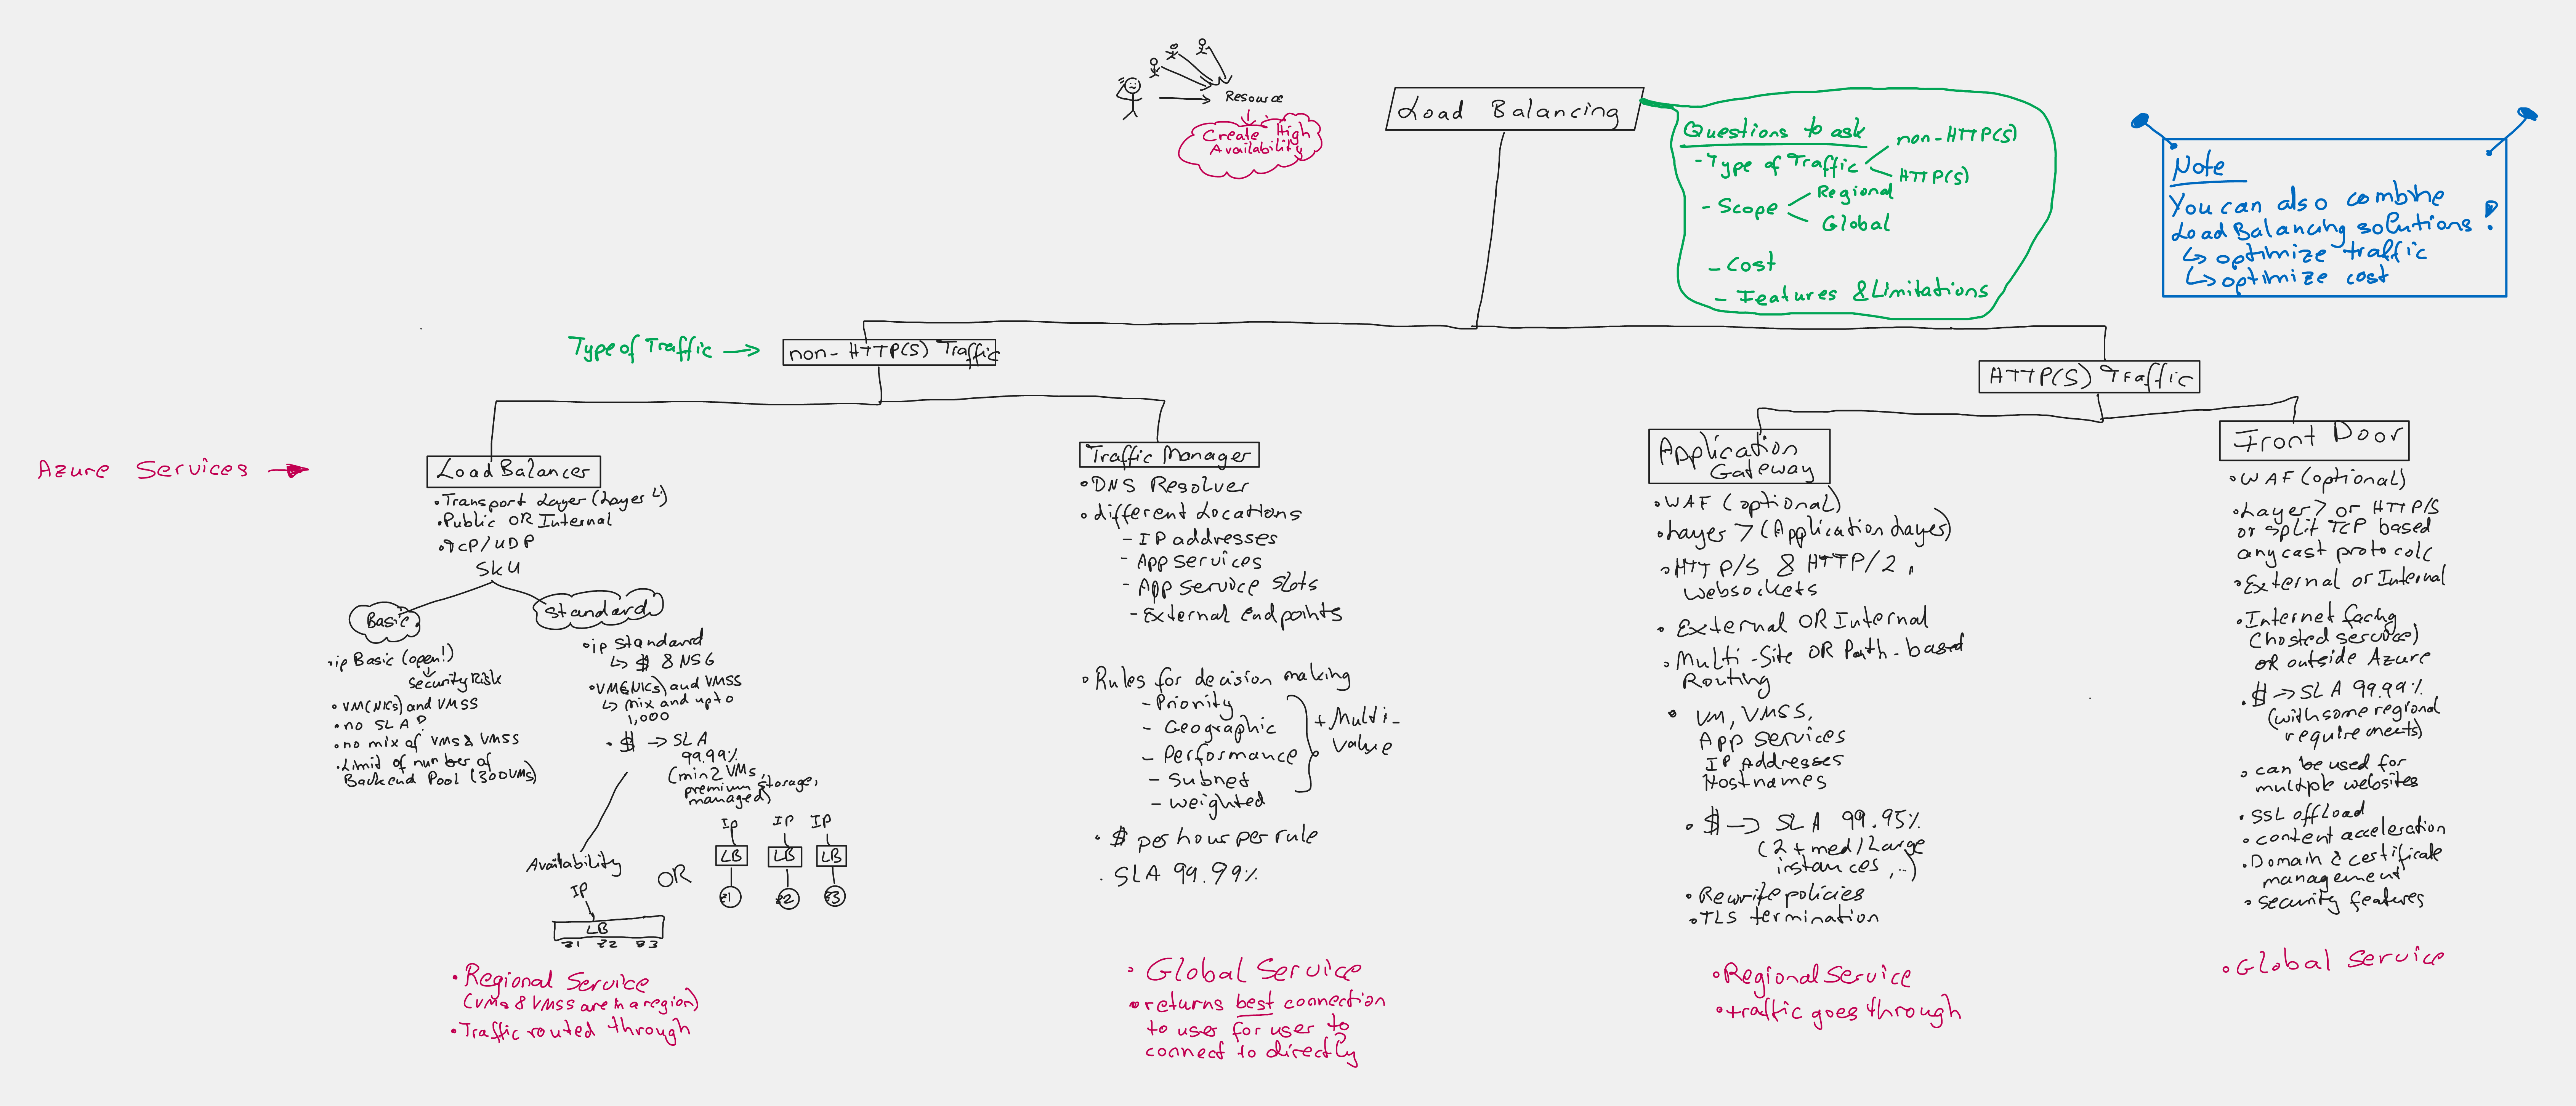 Resource
Create High
Availability
Load Balancing
Questions to ask
- Type of Traffic
non-HTTP(S)
HTTP(S)
- Scope
Regional
Global
- Cost
- Features & Limitations
Note
You can also combine
Load Balancing solutions !
↳ optimize traffic
↳ optimize cost
Type of Traffic →
non-HTTP(S) Traffic
HTTP(S) Traffic
Azure Services →
Load Balancer
• Transport Layer (Layer 4)
• Public OR Internal
• TCP/UDP
SKU
Basic
• ip Basic (open!)
↓
Security Risk
• VM(NICs) and VMSS
• no SLA?
• no mix of VMs & VMSS
• Limit of number of
Backend Pool (300VMs)
Standard
• ip Standard
↳ $ & NSG
• VM(NICs) and VMSS
↳ mix and up to
1,000
• $ → SLA
99.99%
(min 2 VMs,
premium storage,
managed)
Availability
IP
LB
z1 z2 z3
OR
Ip IP IP
LB LB LB
z1 z2 z3
• Regional Service
(VMs & VMSS are in a region)
• Traffic routed through
Traffic Manager
• DNS Resolver
• different Locations
- IP addresses
- App services
- App service Slots
- External endpoints
• Rules for decision making
- Priority
- Geographic
- Performance
- Subnet
- weighted
+ Multi-
value
• $ per hour per rule
• SLA 99.99%
• Global Service
• returns best connection
to user for user to
connect to directly
Application
Gateway
• WAF (optional)
• Layer 7 (Application Layer)
• HTTP/S & HTTP/2,
Websockets
• External OR Internal
• Multi-Site OR Path-based
Routing
• VM, VMSS,
App services
IP Addresses
Hostnames
• $ → SLA 99.95%
(2+ med/Large
instances, ..)
• Rewrite policies
• TLS termination
• Regional Service
• traffic goes through
Front Door
• WAF (optional)
• Layer 7 or HTTP/S
or split TCP based
anycast protocolc
• External or Internal
• Internet facing
(hosted service)
OR outside Azure
• $ → SLA 99.99%
(with some regional
requirements)
• can be used for
multiple websites
• SSL offload
• content acceleration
• Domain & certificate
management
• security features
• Global Service